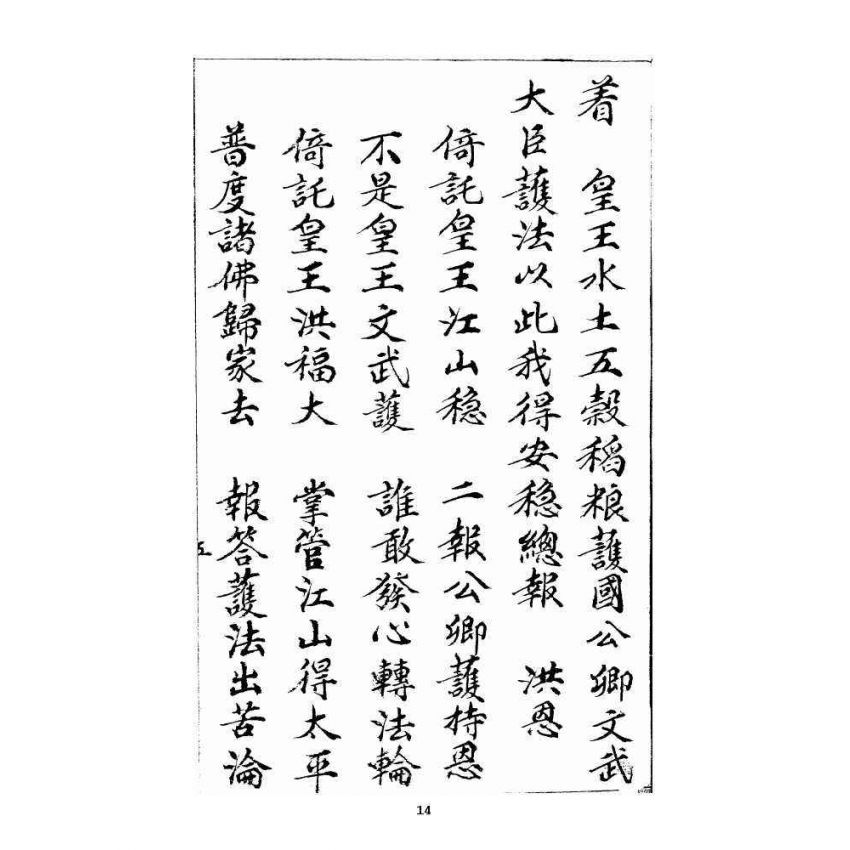 着　皇王水土五穀稻粮護國公卿文武
大臣護法以此我得安穏總報　洪恩
倚託皇王江山穏　二報公卿護持恩
不是皇王文武護　誰敢發心轉法輪
倚託皇王洪福大　掌管江山得太平
普度諸佛歸家去　報答護法出苦淪
五
14